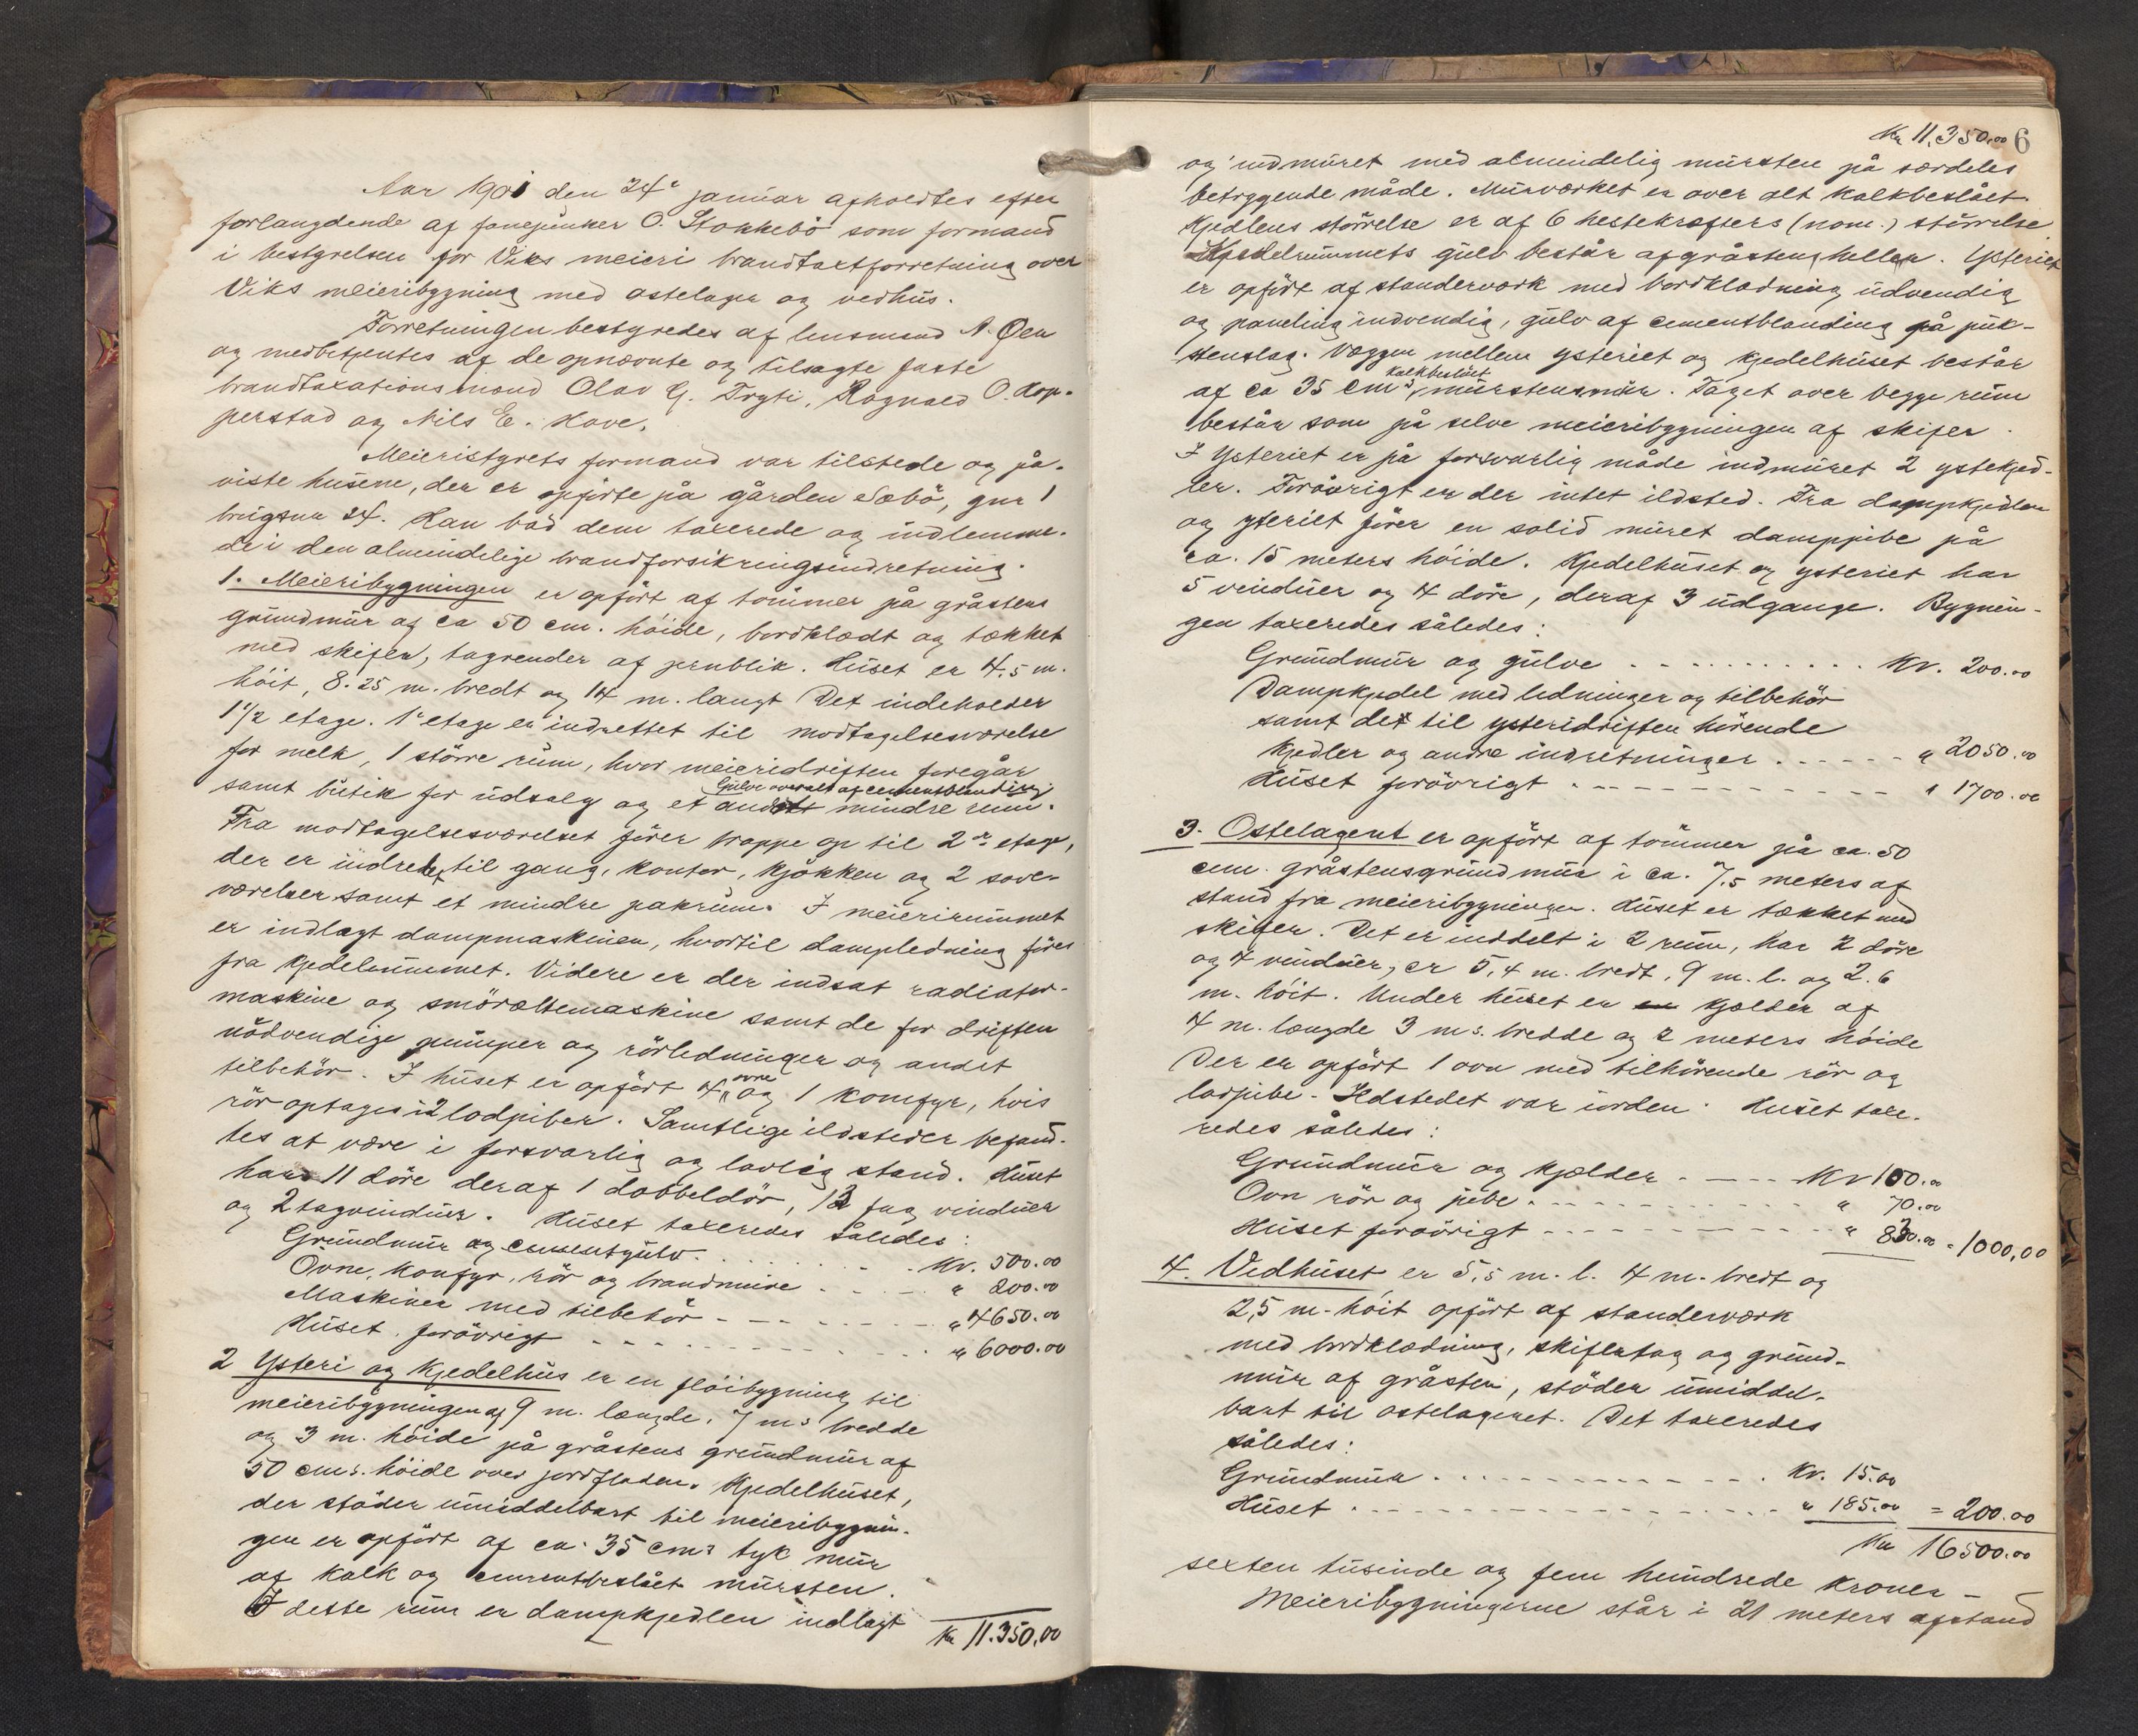 Aar 1901 den 24e januar afholdtes efter
forlangdende af fanejunker O. Stokkebö som formand
i bestyrelsen for Viks meieri brandtaxtforretning over
Viks meieribygning med ostelager og vedhus.
Forretningen bestyredes af lensmand A. Øen
og medbetjentes af de opnævnte og tilsagte faste
brandtaxationsmænd Olav G. Tryti, Ragnald O. Hop-
perstad og Nils E. Hove.
Meieristyrets formand var tilstede og på-
viste husene, der er opførte på gården Sæbö, gnr 1
brugsnr 24. Han bad dem taxerede og indlemme-
de i den almindelige brandforsikringsindretning.
1. Meieribygningen er opfört af tömmer på gråstens
grundmur af ca 50 cm. höide, bordklædt og tækket
med skifer, tagrender af jernblik. Huset er 4.5 m.
höit, 8.25 m. bredt og 14 m. langt Det indeholder
1 1/2 etage. 1e etage er indrettet til modtagelsesværelse
for melk, 1 större rum, hvor meieridriften foregår
samt butik for udsalg og et andet mindre rum.
Gulve overalt af cementblanding
Fra modtagelsesværelset förer trappe op til 2den etage,
der er indredet til gang, kontor, kjökken og 2 sove-
værelser samt et mindre pakrum. I meierirummet
er indlagt dampmaskinen, hvortil dampledning förer
fra kjedelrummet. Videre er der indsat radiator-
maskine og smöræltemaskine samt de for driften
nödvendige pumper og rörledninger og andet
tilbehör. I huset er opfört 4 ovne og 1 komfyr, hvis
rör optages i 2 lodpiber. Samtlige ildsteder befand-
tes at være i forsvarlig og lovlig stand. Huset
har 11 döre deraf 1 dobbeldör, 12 fag vinduer
og 2 tagvinduer. Huset taxeredes således:
Grundmur og cementgulv . . . . . Kr. 500.00
Ovne, komfyr, rör og brandmure . . . . " 200.00
Maskiner med tilbehör - - - - - " 4650.00
Huset forövrigt - - - - - - - " 6000.00
2 Ysteri og kjedelhus er en flöibygning til
meieribygningen af 9 m. længde, 7 ms bredde
og 3 m. höide på gråstens grundmur af
50 cms. höide over jordfladen. Kjedelhuset,
der stöder umiddelbart til meieribygnin-
gen er opfört af ca. 35 cms tyk mur
af kalk og cementbeslået mursten.
I dette rum er dampkjedlen indlagt
Kr 11.350.00
Kr 11,350.00 6
og indmuret med almindelig mursten på særdeles
betryggende måde. Murværket er over alt kalkbeslået.
Kjedlens störrelse er af 6 hestekræfters (nom.) störrelse
Kjedelrummets gulv består af gråstenshellen. Ysteriet
er opfört af standerværk med bordklædning udvendig
og paneling indvendig, gulv af cementblanding på puk-
stenslag. Væggen mellem ysteriet og kjedelhuset består
af ca 35 cms kalkbeslået murstensmur. Taget over begge rum
består som på selve meieribygningen af skifer.
I Ysteriet er på forsvarlig måde indmuret 2 ystekjed-
ler. Forövrigt er der intet ildsted. Fra dampkjedlen
og ysteriet förer en solid muret damppibe på
ca. 15 meters höide. Kjedelhuset og ysteriet har
5 vinduer og 4 döre, deraf 3 udgange. Bygnin-
gen taxeredes således:
Grundmur og gulve . . . . . . . . . Kr. 200.00
Dampkjedel med ledninger og tilbehör
samt det til ysteridriften hörende
kjedler og andre indretninger . . . . . . " 2050.00
Huset forövrigt - - - - - - - - " 1700.00
3. Ostelageret er opfört af tömmer på ca. 50
cm. gråstensgrundmur i ca. 7.5 meters af
stand fra meieribygningen. Huset er tækket med
skifer. Det er inddelt i 2 rum, har 2 döre
og 4 vinduer, er 5,4 m. bredt, 9 m. l. og 2.6
m. höit. Under huset er en kjælder af
4 m. længde 3 ms. bredde og 2 meters höide
Der er opfört 1 ovn med tilhörende rör og
ladpibe. Ildstedet var iorden. Huset taxe-
redes således:
Grundmur og kjælder . - - - - Kr 100.00
Ovn rör og pibe . - - - - - - " 70.00
Huset forövrigt - - - - - - - " 830.00 = 1000,00
4. Vedhuset er 5,5 m. l. 4 m. bredt og
2,5 m. höit opfört af standerværk
med bordklædning, skifertag og grund-
mur af gråsten, stöder umiddel-
bart til ostelageret. Det taxeredes
således:
Grundmur . - - - - - - - - Kr. 15.00
Huset . - - - - - - - - - " 185.00 = 200.00
Kr 16500.00
sexten tusinde og fem hundrede kroner -
Meieribygningerne står i 21 meters afstand